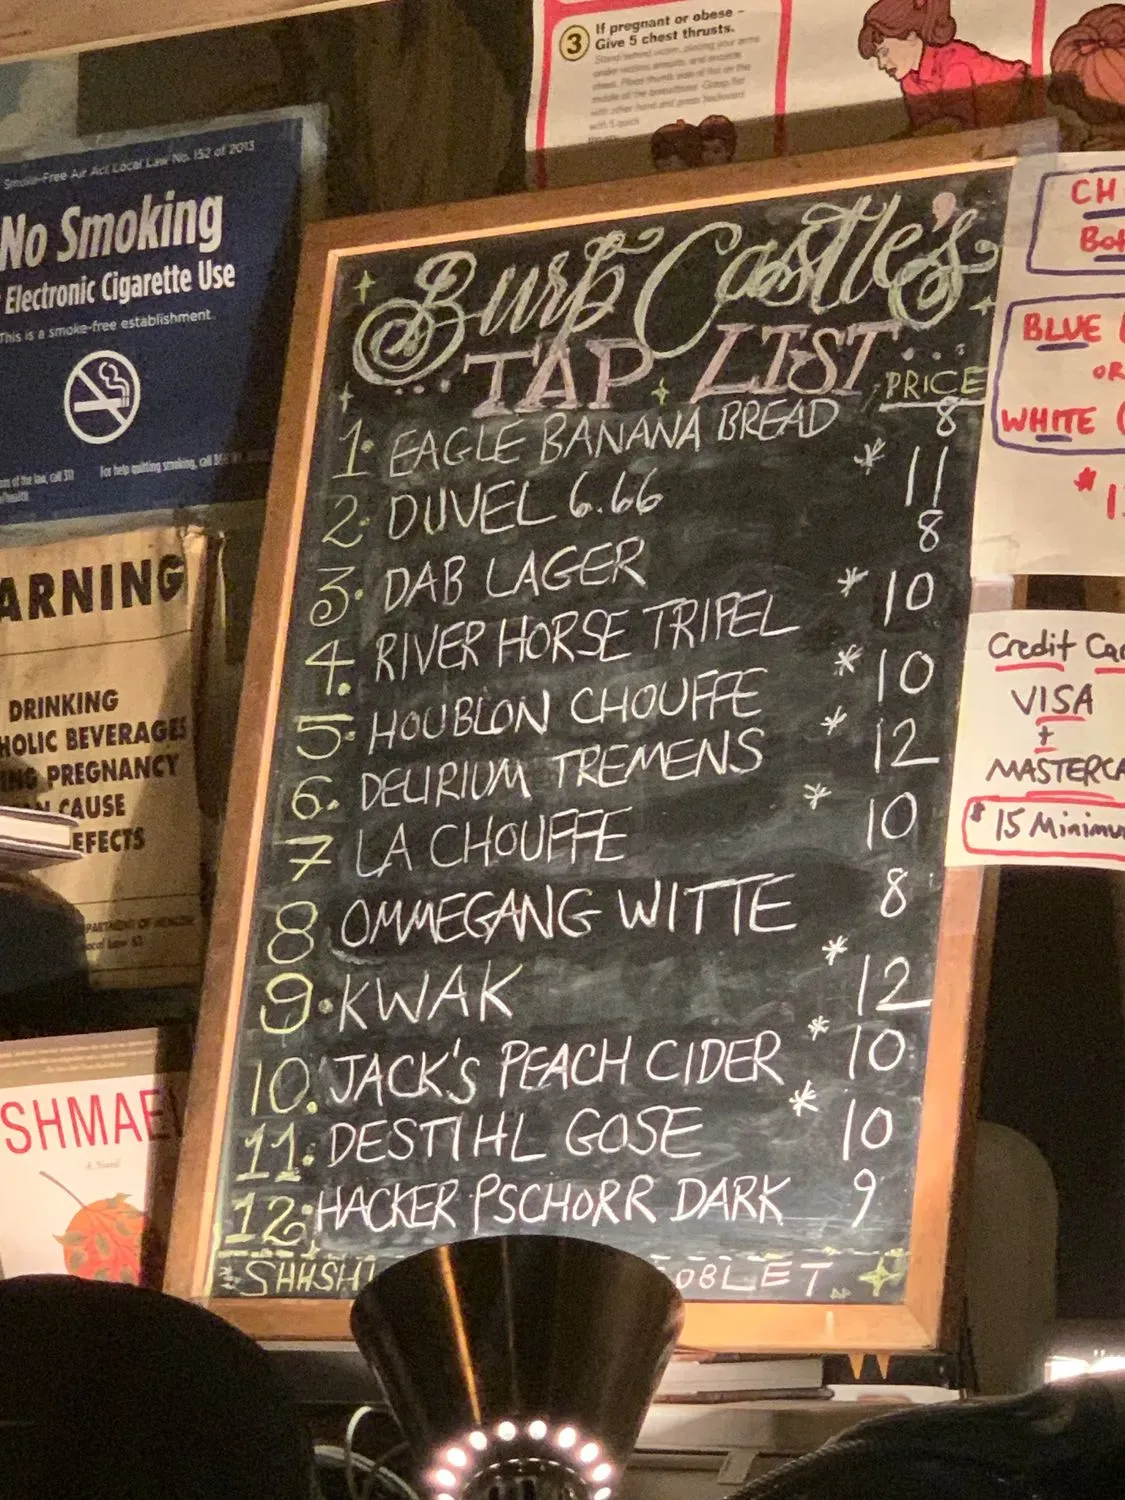 3 If pregnant or obese –
Give 5 chest thrusts.
Smoke-Free Air Act Local Law No. 152 of 2013
No Smoking
Electronic Cigarette Use
This is a smoke-free establishment.
of the law, call 311
For help quitting smoking, call
ARNING
DRINKING
HOLIC BEVERAGES
ING PREGNANCY
CAUSE
EFECTS
SHMAEL
A Novel
Burp Castle's
TAP LIST
PRICE
1. EAGLE BANANA BREAD 8
2. DUVEL 6.66 * 11
3. DAB LAGER 8
4. RIVER HORSE TRIPEL * 10
5. HOUBLON CHOUFFE * 10
6. DELIRIUM TREMENS * 12
7 LA CHOUFFE * 10
8 OMMEGANG WITTE 8
9. KWAK * 12
10. JACK'S PEACH CIDER * 10
11. DESTIHL GOSE * 10
12. HACKER PSCHORR DARK 9
SHHSH! OBLET
CH
Bot
BLUE
OR
WHITE (
Credit Ca
VISA
+
MASTERCA
$15 Minimu